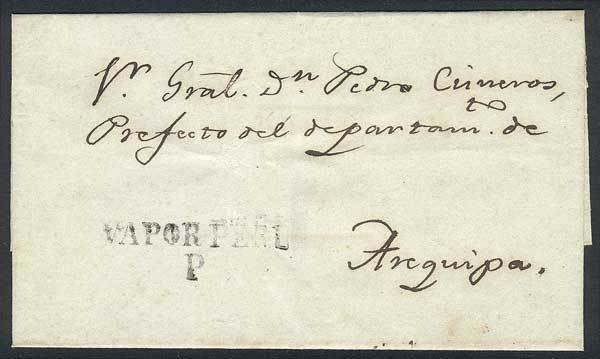 Sr. Gral. Dn Pedro Cisneros,
Prefecto del departamto. de
VAPOR PERU
P
Arequipa.